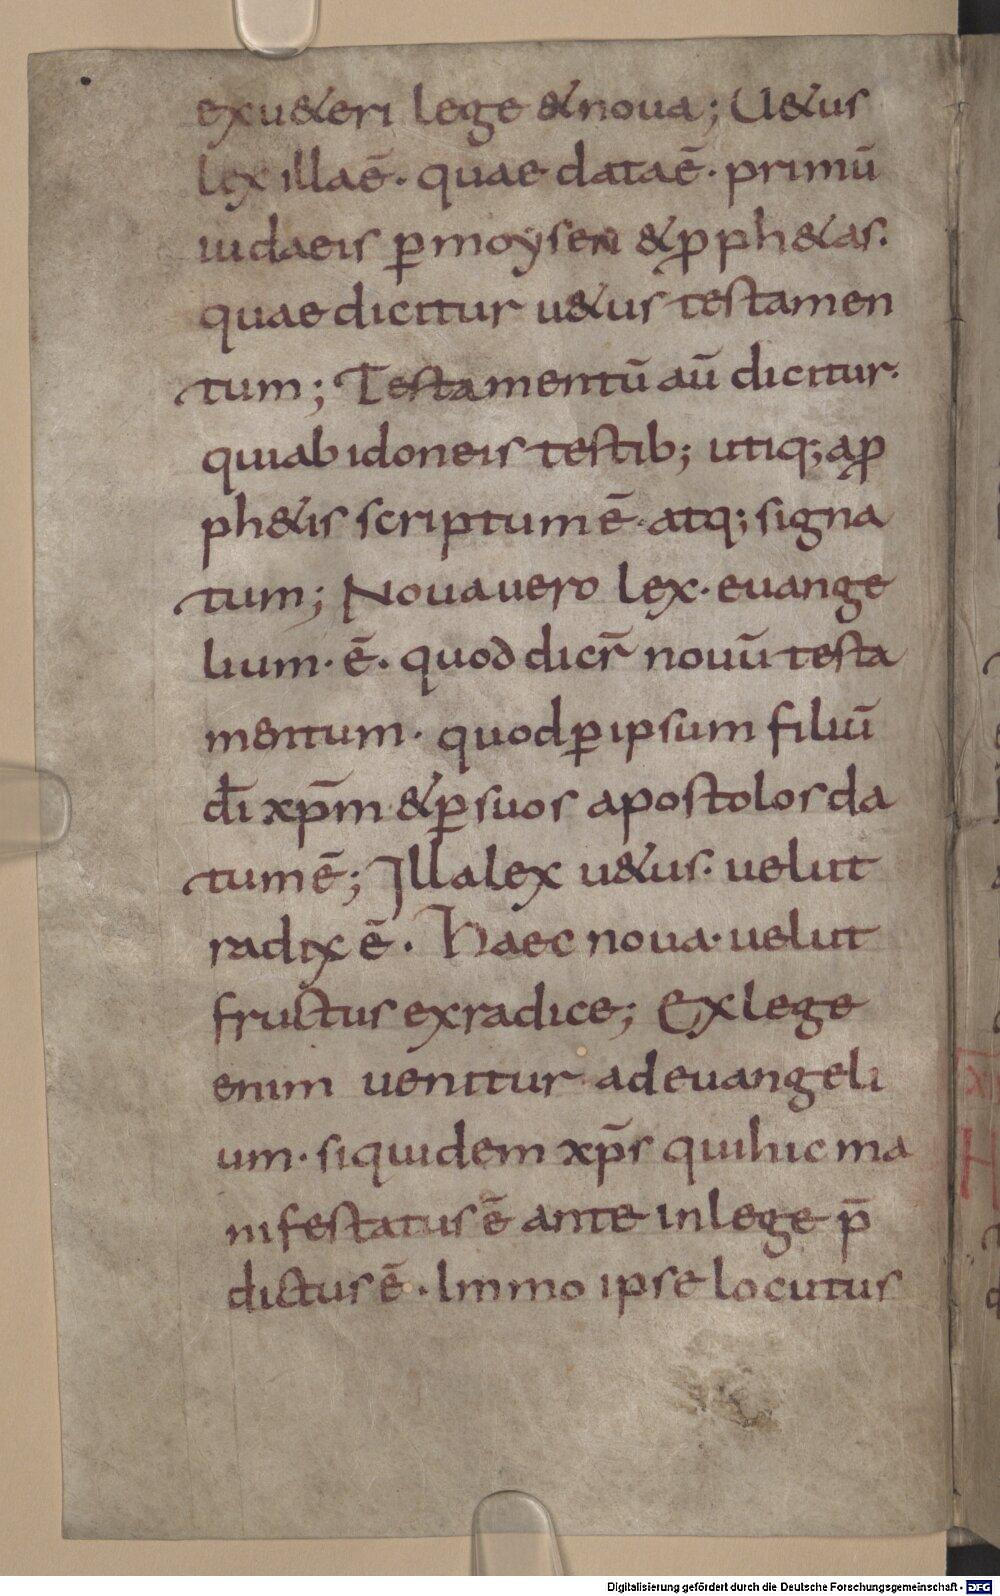 exu&eri lege & noua; U&us
lex illa ē. quae data ē. primū
iudaeis p̲ moysen & p̲ph&as.
quae dicitur u&us testamen
tum; Testamentū aū dicitur.
quia b idoneis testib; utiq; a p̲
ph&is scriptum ē. atq; signa
tum; Noua uero lex. euange
lium. ē. quod dicr̄ nouū testa
mentum. quod p̲ ipsum filiū
dī xp̄m & p̲ suos apostolos da
tum ē; Illa lex u&us. uelut
radix ē. Haec noua. uelut
fructus ex radice; Ex lege
enim uenitur ad euangeli
um. siquidem xp̄s qui huc ma
nifestatus ē ante in lege p̄
dictus ē. Immo ipse locutus
Digitalisierung gefördert durch die Deutsche Forschungsgemeinschaft - DFG